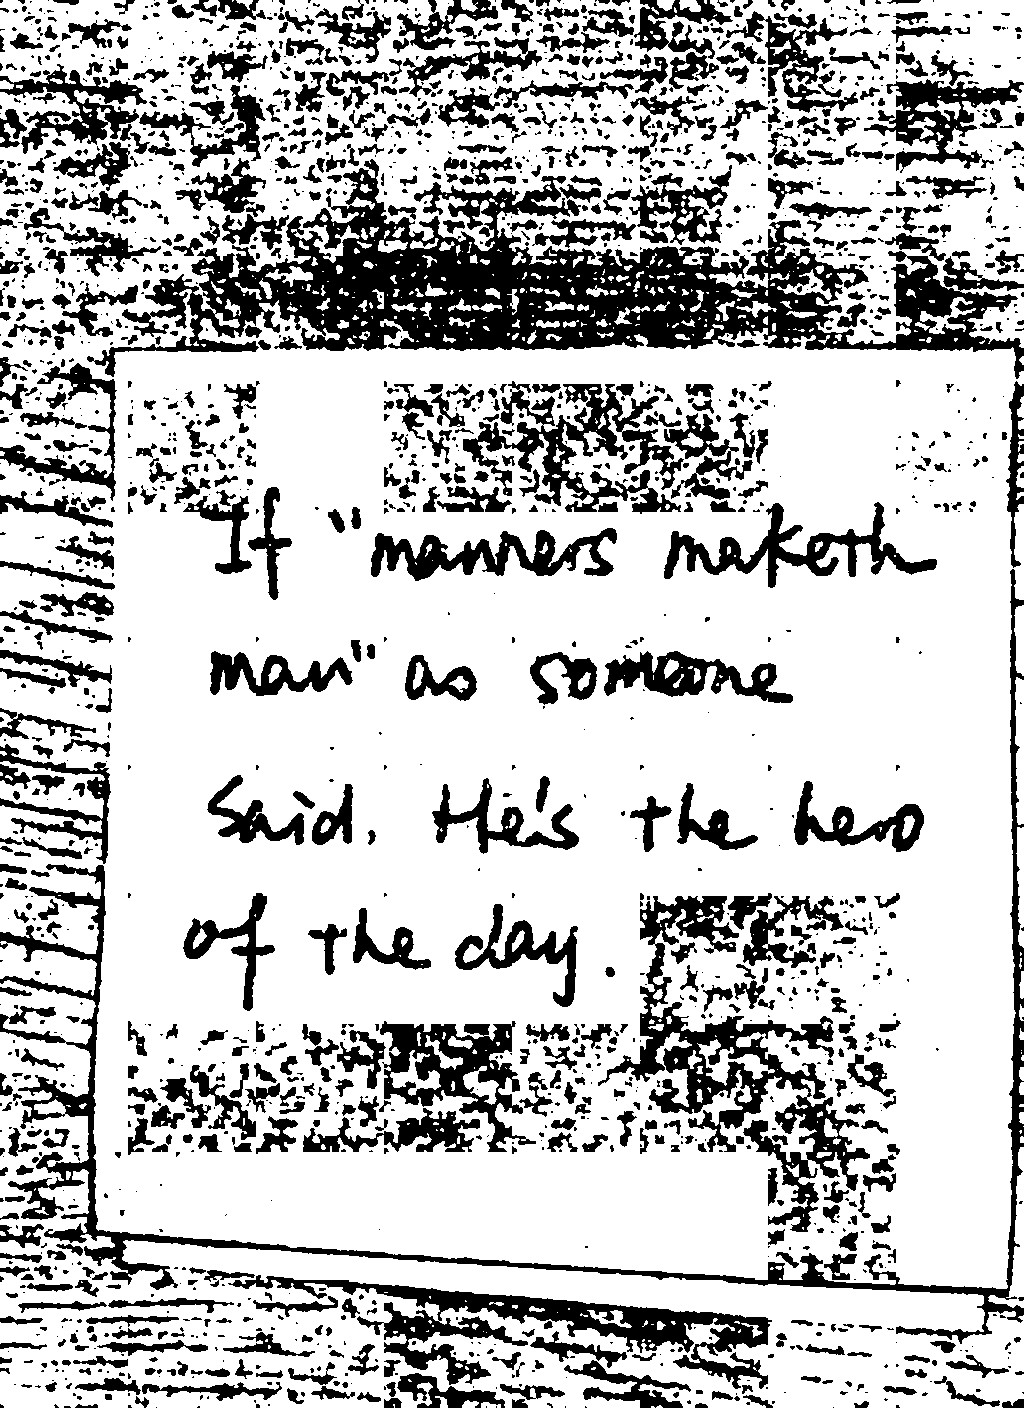 If "manners maketh
man" as someone
Said, He's the hero
of the day.